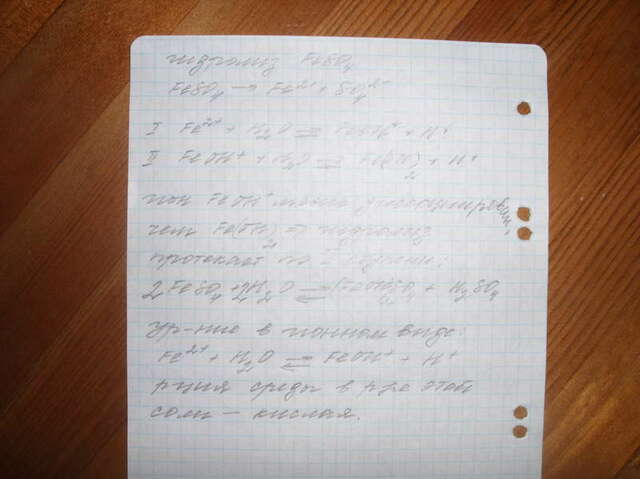 гидролиз FeSO4
FeSO4 → Fe2+ + SO4 2-
I Fe2+ + H2O ⇌ FeOH+ + H+
II FeOH+ + H2O ⇌ Fe(OH)2 + H+
ион FeOH+ диссоциирован,
чем Fe(OH)2 ⇒ гидролиз
протекает по I ступени:
2FeSO4 + 2H2O ⇌ (FeOH)2SO4 + H2SO4
Ур-ние в ионном виде:
Fe2+ + H2O ⇌ FeOH+ + H+
р-ция среды в р-ре этой
соли – кислая.